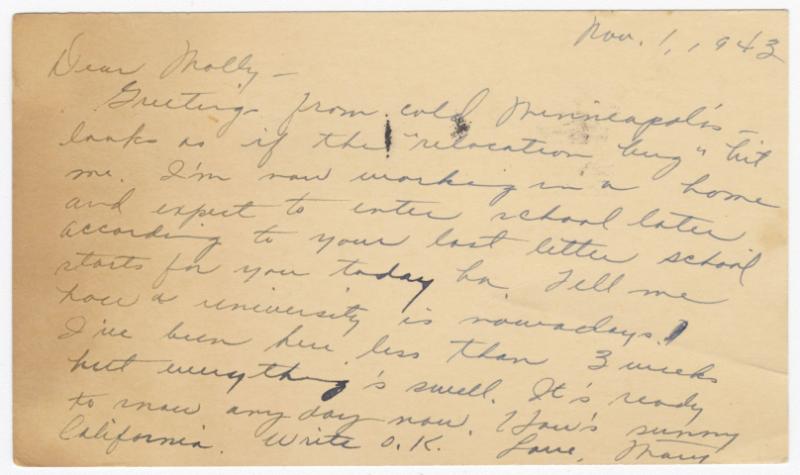 Nov. 1, 1943
Dear Molly –
Greetings from cold Minneapolis –
looks as if the "relocation bug" hit
me. I'm now working in a home
and expect to enter school later
according to your last letter school
starts for you today ha. Tell me
how a university is nowadays.
I've been here less than 3 weeks
but everything's swell. It's ready
to snow any day now. How's sunny
California. Write O.K. Love, Mary